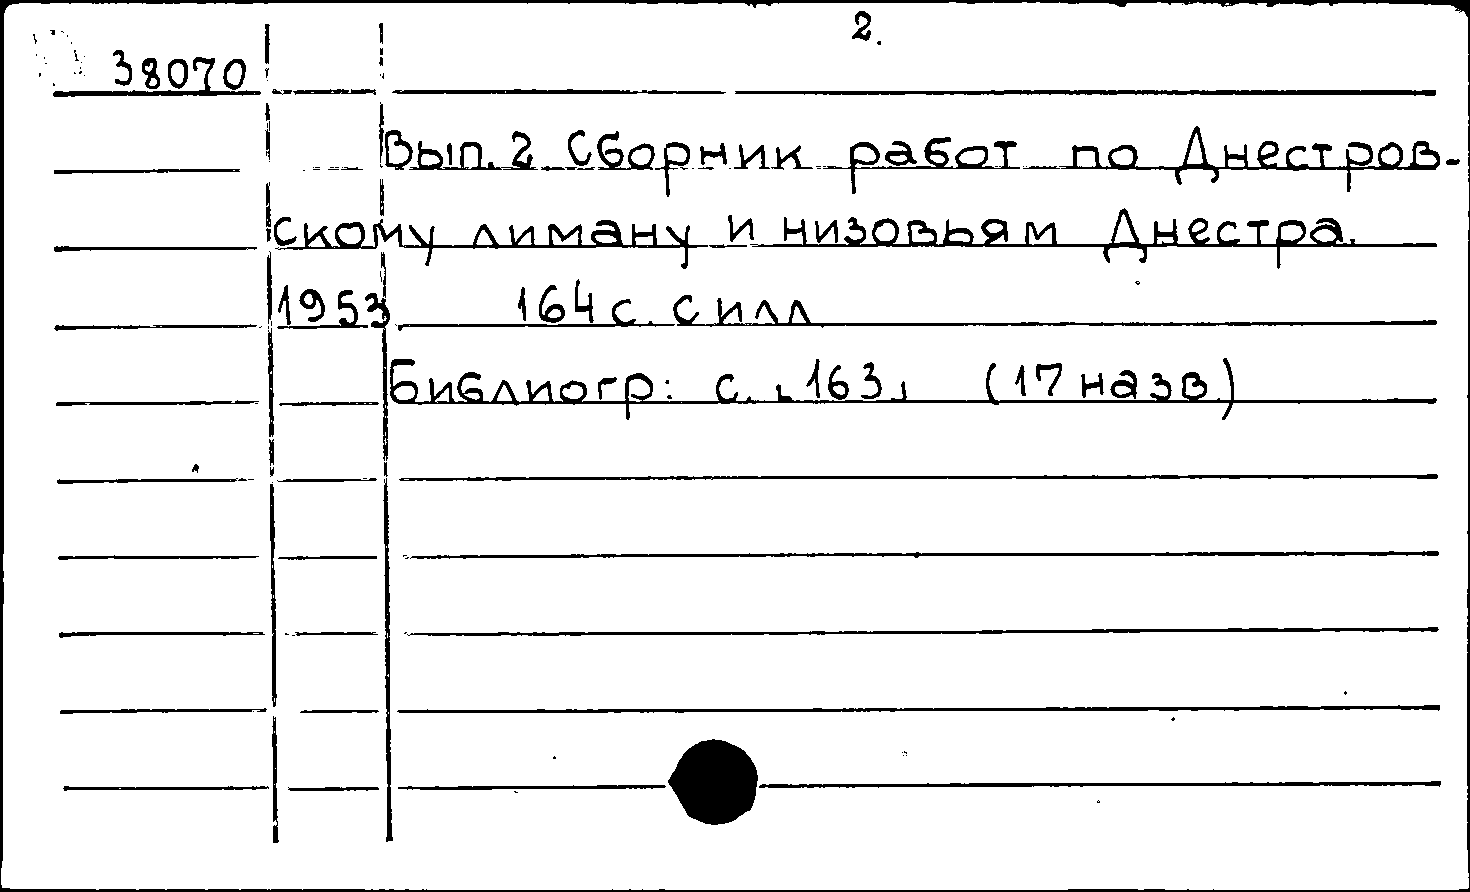 2.
38070
Вып. 2 Сборник работ по Днестров-
скому лиману и низовьям Днестра.
1953 164 с. с илл
Библиогр: с. ⌞163⌟ (17 назв.)